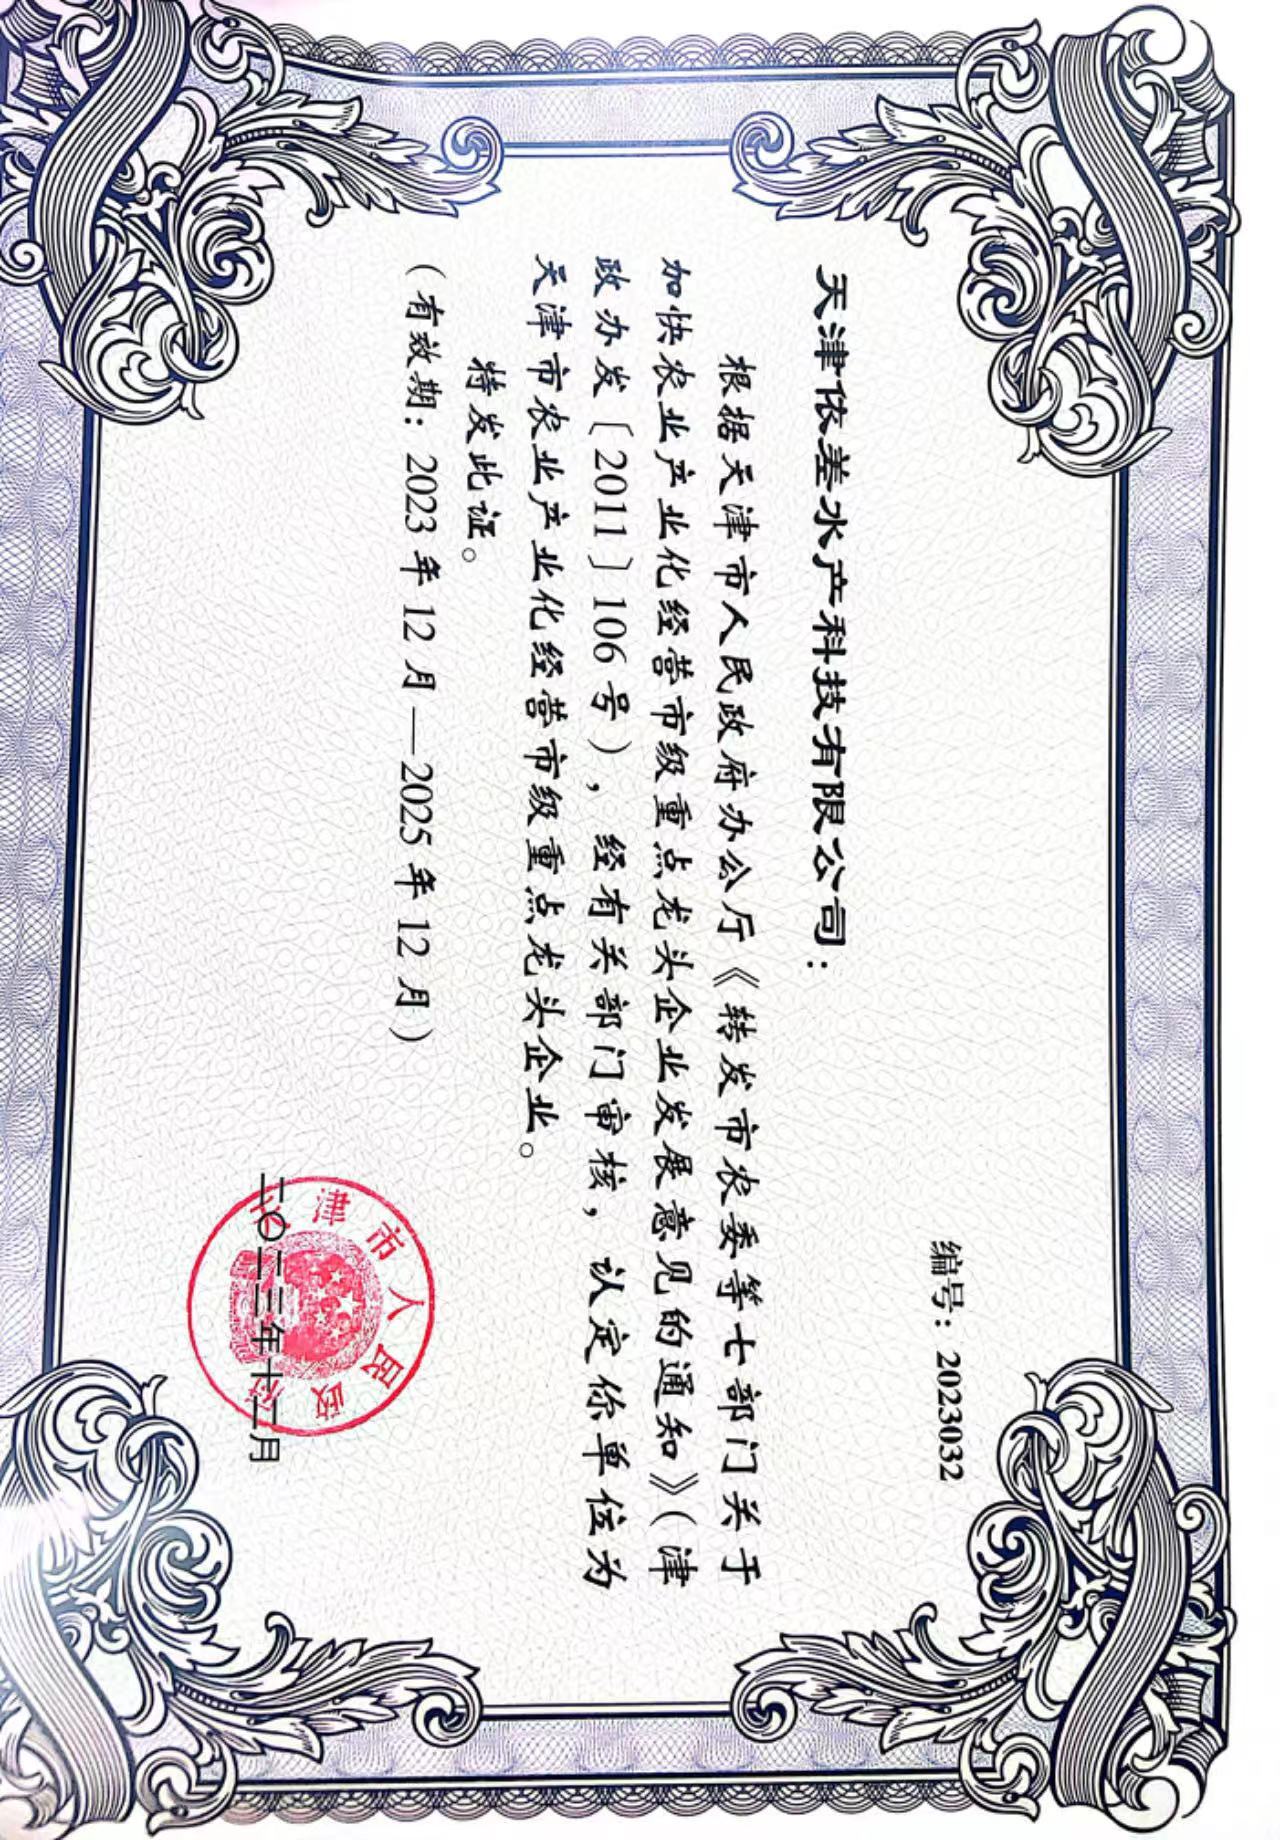 编号：2023032
天津依差水产科技有限公司：
根据天津市人民政府办公厅《转发市农委等七部门关于
加快农业产业化经营市级重点龙头企业发展意见的通知》（津
政办发〔2011〕106号），经有关部门审核，认定你单位为
天津市农业产业化经营市级重点龙头企业。
特发此证。
（有效期：2023年12月—2025年12月）
天津市人民政府
二〇二三年十二月